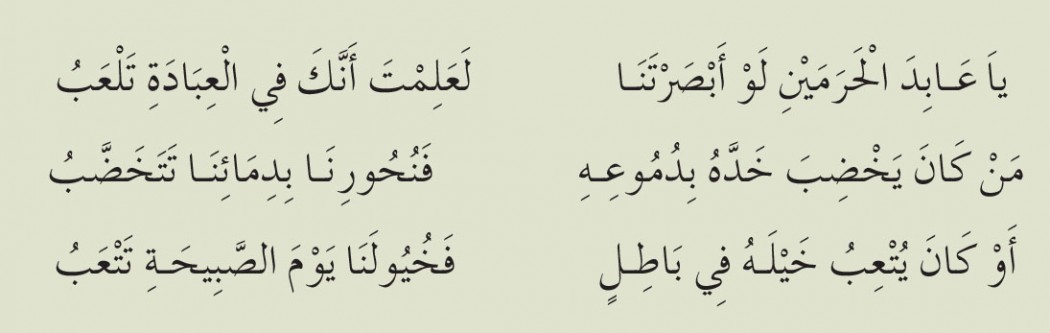 ياَ عَـابِدَ الْحَرَمَيْنِ لَوْ أَبْصَرْتَنَـا لَعَلِمْتَ أَنَّكَ فِي الْعِبَادَةِ تَلْعَبُ
مَنْ كَانَ يَخْضِبَ خَدَّهُ بِدُمُوعِـهِ فَنُحُورِنَـا بِدِمَائِنَـا تَتَخَضَّبُ
أَوْ كَانَ يُتْعِبُ خَيْلَـهُ فِي بَاطِـلٍ فَخُيُولَنَا يَوْمَ الصَّبِيحَـةِ تَتْعَبُ